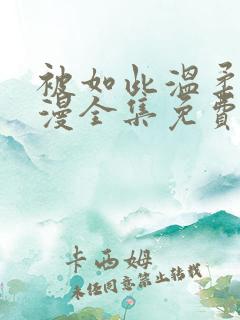 被如此温柔
漫全集免費
卡西姆
未经同意禁止转载